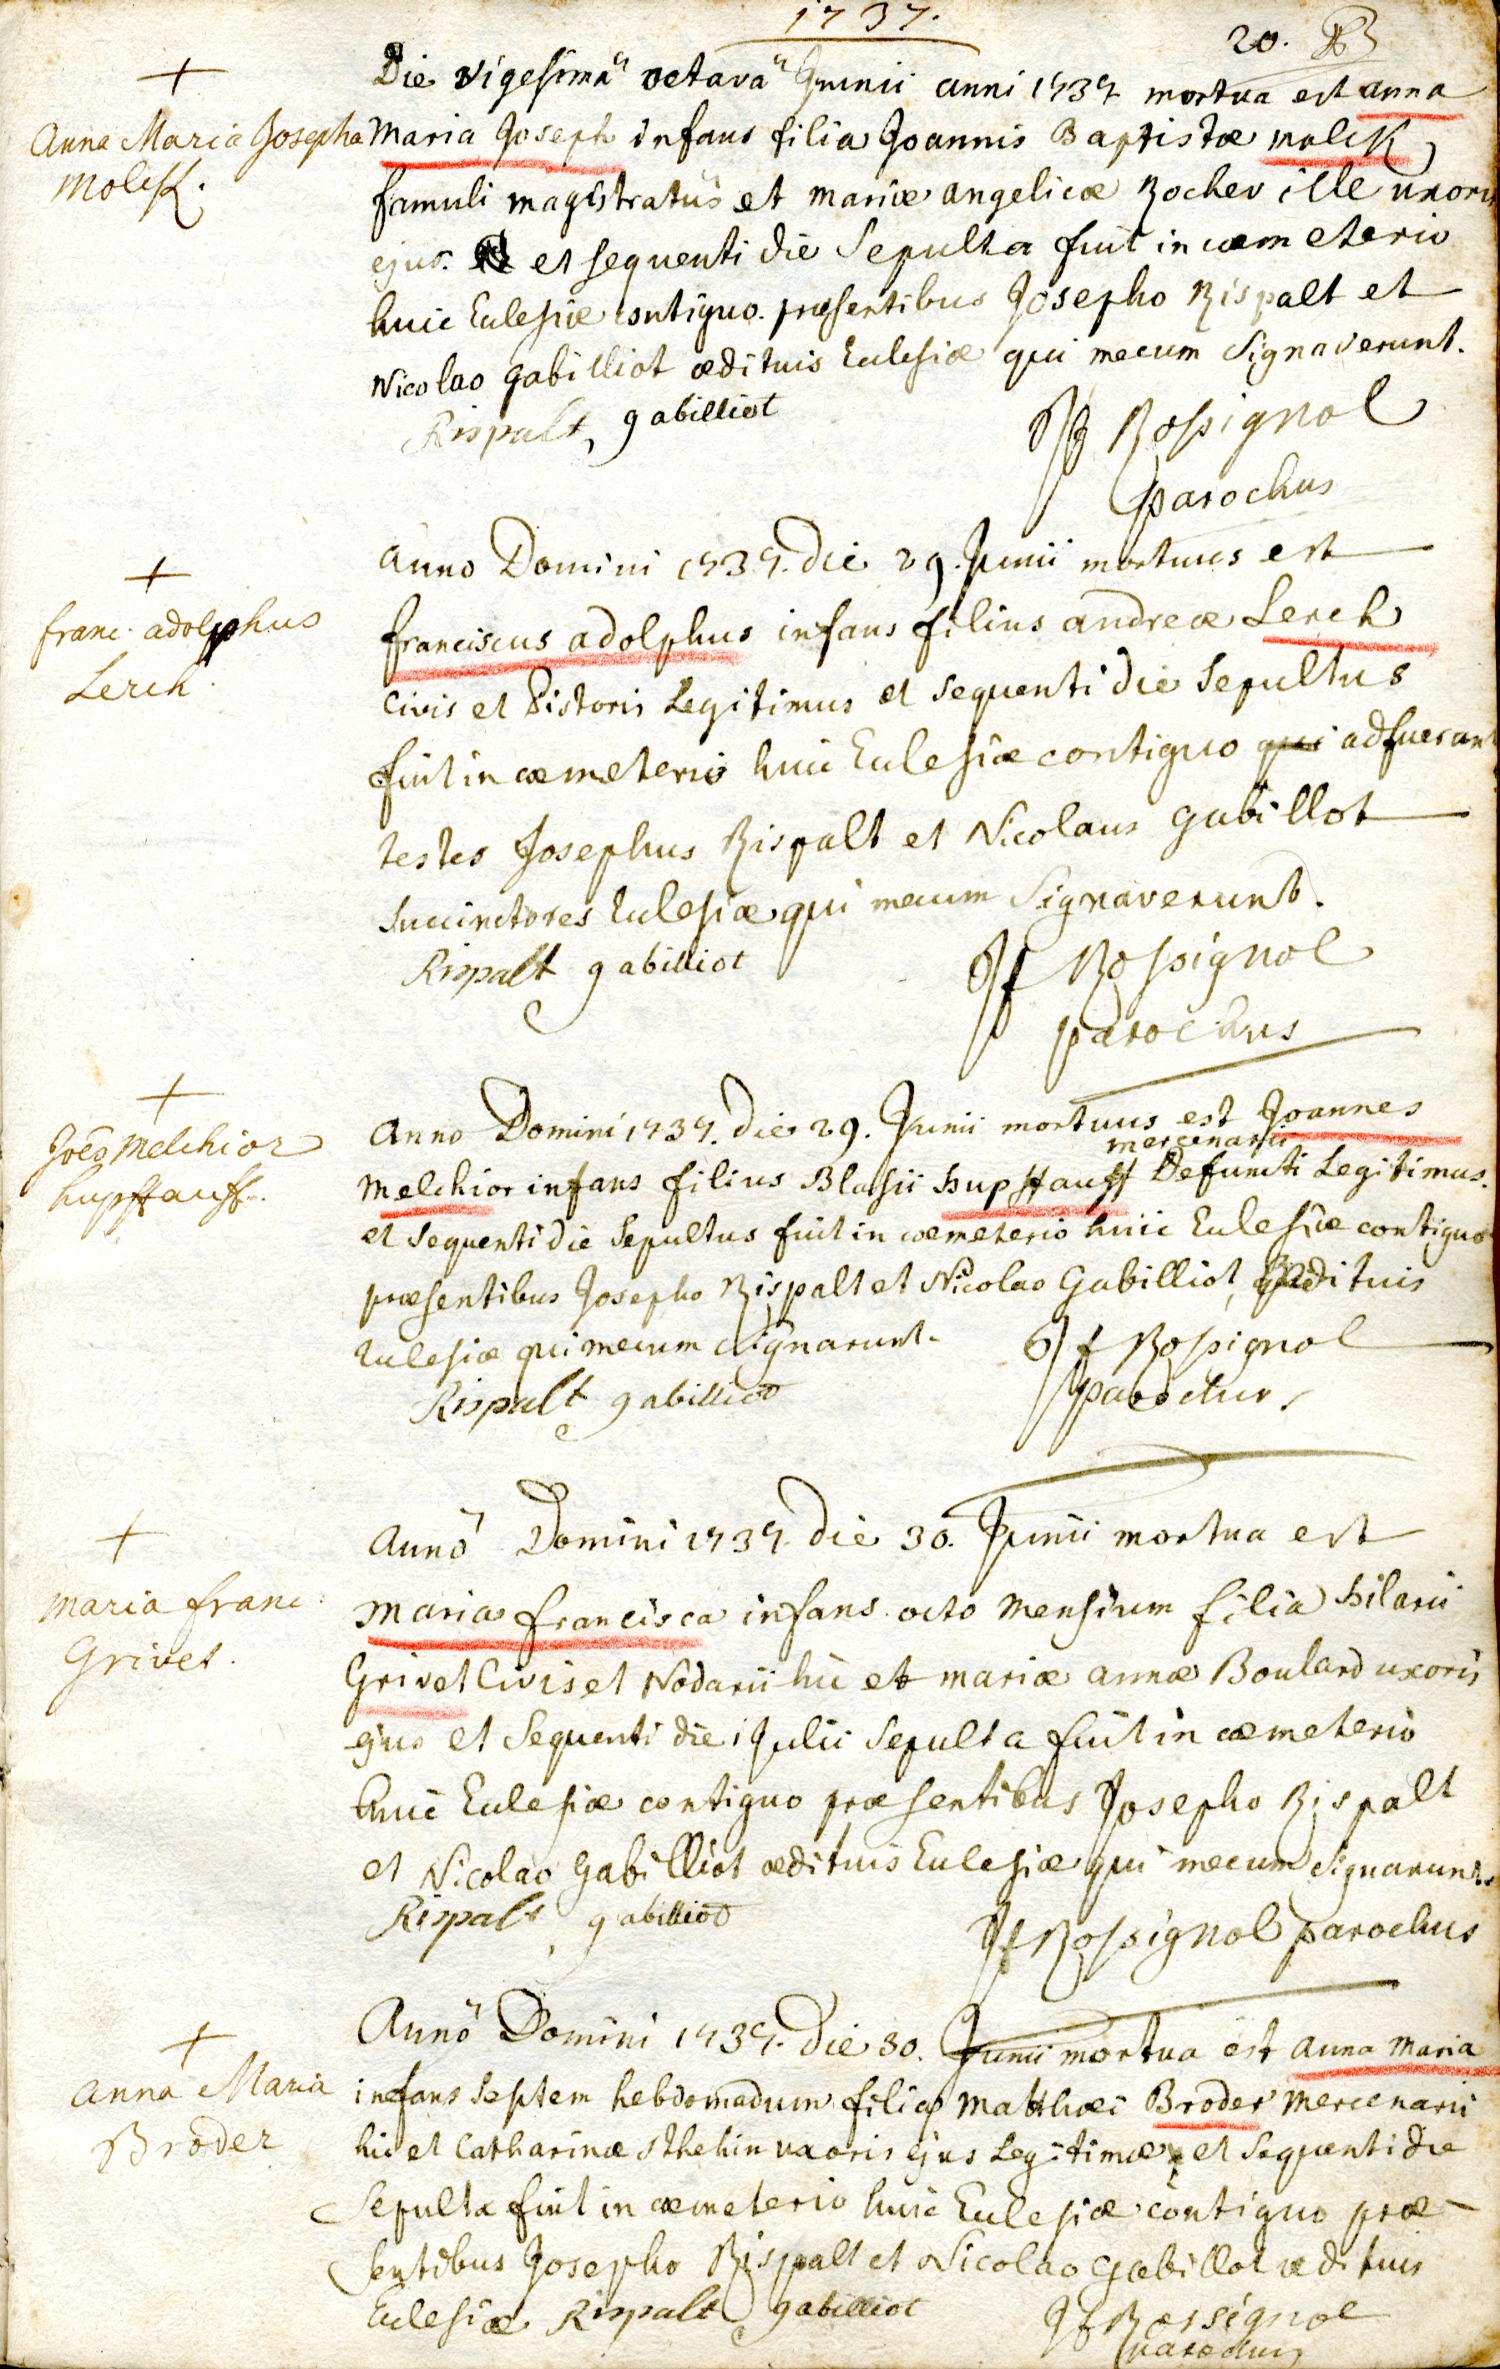 1737.
20.
Die vigesimâ octavâ Junii anni 1737 mortua est anna
Anna Maria Josepha
Molck.
Maria Joseph infans filia Joannis Baptistæ molck
famuli magistratûs et mariæ angelicæ Rochev ille uxoris
ejus. et sequenti die Sepulta fuit in cœmeterio
huic Eclesiæ contiguo. præsentibus Josepho Rispalt et
Nicolao gabilliot ædituis Eclesiæ qui mecum signaverunt.
Rispalt, gabilliot
Jf Rossignol
parochus
franc. adolphus
Lerch.
anno Domini 1737. die 29. Junii mortuus est
franciscus adolphus infans filius andreæ Lerch
civis et Pistoris Legitimus et sequenti die Sepultus
fuit in cœmeterio huic Eclesiæ contiguo qui adfuerunt
testes Josephus Rispalt et Nicolaus gabillot
succinctores Eclesiæ qui mecum Signaverunt.
Rispalt gabilliot
Jf Rossignol
parochus
Joës Melchior
hupffauff.
anno Domini 1737. die 29. Junii mortuus est Joannes
mercenarii
Melchior infans filius Blasii hupffauff Defuncti Legitimus.
et sequenti die Sepultus fuit in cœmeterio huic Eclesiæ contiguo
præsentibus Josepho Rispalt et Nicolao Gabilliot, ædituis
Eclesiæ qui mecum signarunt.
Jf Rossignol
Rispalt gabilliot
parochus
maria franc.
Grivet.
anno Domini 1737. die 30. Junii mortua est
maria francisca infans octo mensium filia hilarii
Grivet Civis et Nodarii hic et mariæ annæ Boulard uxoris
ejus et sequenti die 1 Julii Sepulta fuit in cœmeterio
huic Eclesiæ contiguo præsentibus Josepho Rispalt
et Nicolao Gabilliot ædituis Eclesiæ qui mecum signarunt.
Rispalt, gabilliot
Jf Rossignol parochus
anna Maria
Broder
Anno Domini 1737. die 30. Junii mortua est anna maria
infans septem hebdomadum filia Matthæi Broder Mercenarii
hic et Catharinæ Sthehin uxoris ejus Legitimæ et sequenti die
Sepulta fuit in cœmeterio huic Eclesiæ contiguo præ-
sentibus Josepho Rispalt et Nicolao Gabillot ædituis
Eclesiæ Rispalt gabilliot
Jf Rossignol
parochus